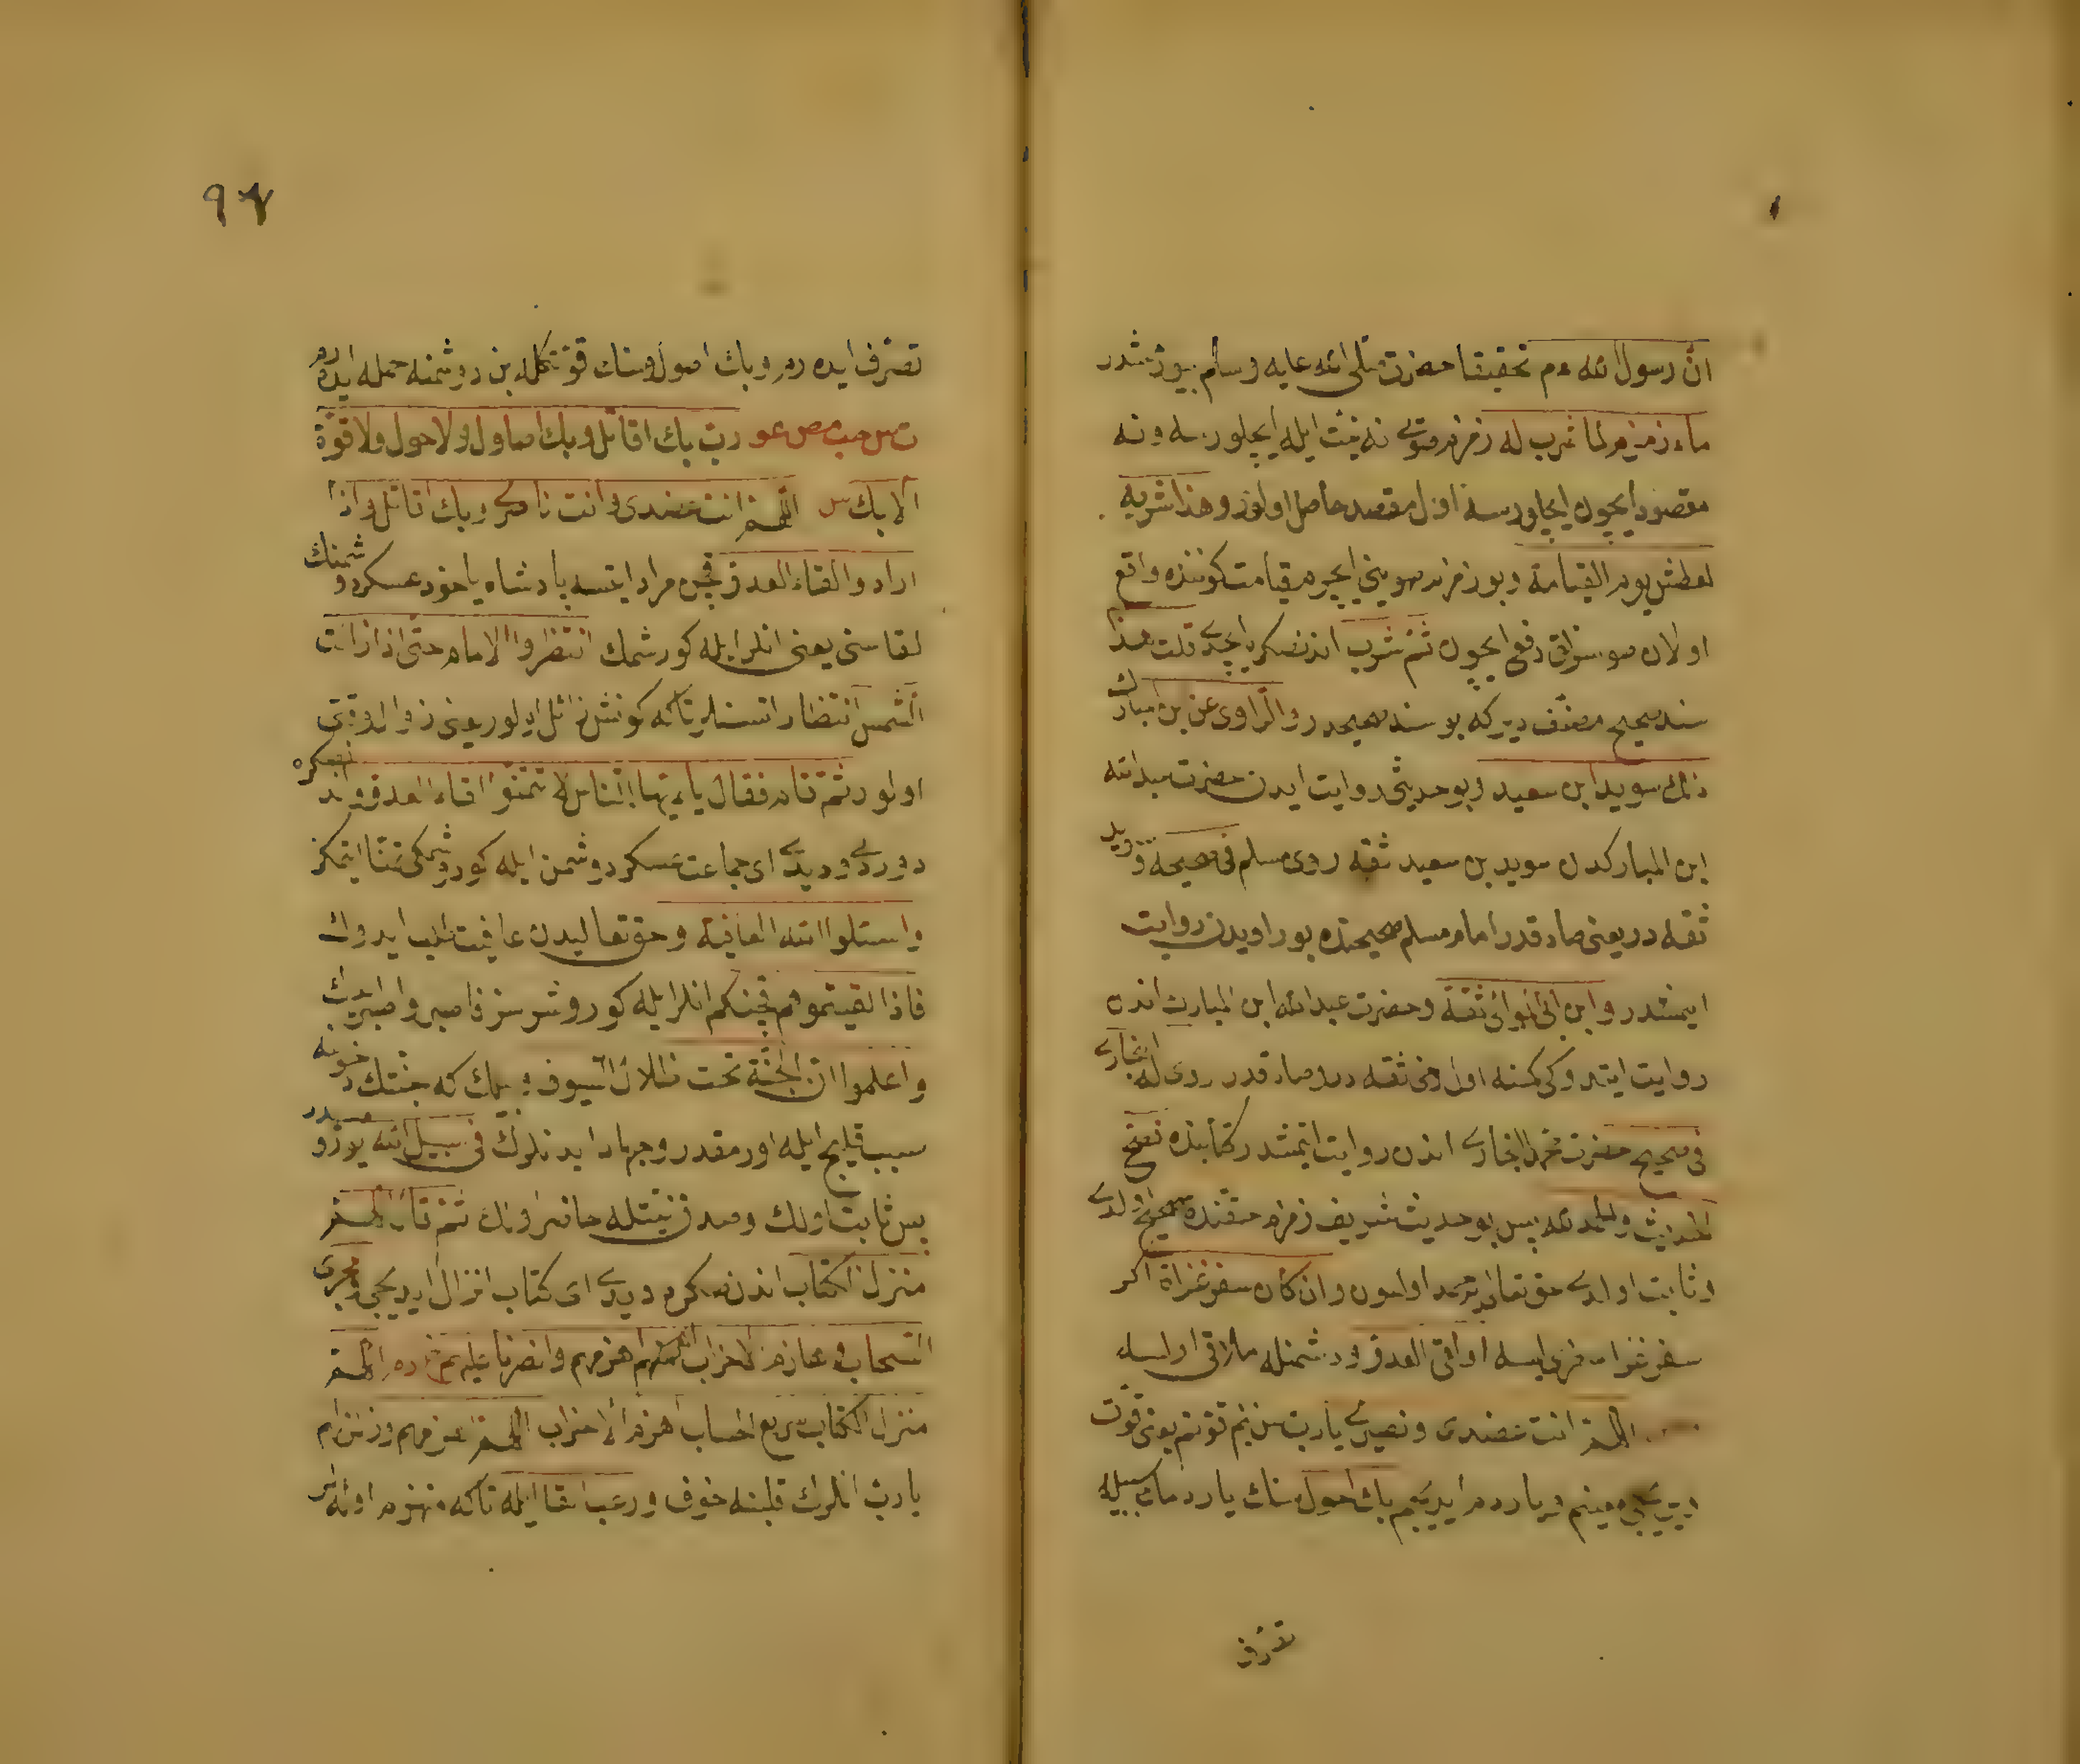 انّ رسول الله م تحقيقا حضرت صلى الله عليه وسلم بيورمشدر
ماء زمزم لما شرب له زمزم صويى نه نيت ايله ايچلورسه ونه
مقصود ايچون ايچلورسه اول مقصد حاصل اولور وهذا اشربه
لعطش يوم القيامة وبو زمزم صوينى ايچرم قيامت كوننده واقع
اولان صوسزلق دفعى ايچون ثم شرب اندنصكره ايچدى قلت هذا
سند صحيح مصنف دير كه بو سند صحيحدر والراوى عن ابن المبارك
ذلك سويد ابن سعيد وبو حديثى روايت ايدن حضرت عبد الله
ابن المباركدن سويد بن سعيد ثقه روى مسلم فى صحيحه وسويد
ثقه در يعنى صادقدر امام مسلم صحيحنده بو راويدن روايت
ايتمشدر وابن ابى الموالى ثقة وحضرت عبد الله ابن المبارك اندن
روايت ايتدوكى كمسنه اول دخى ثقه در وصادقدر روى له البخارى
فى صحيحه حضرت محمد البخارى اندن روايت ايتمشدر كتابنده فصح
الحديث والحمد لله پس بو حديث شريف زمزم حقنده صحيح اولدى
وثابت اولدى حق تعالى يه حمد اولسون وان كان سفر غزاة اكر
سفر غزا سفرى ايسه او لقى العدو ودشمنله ملاقى اولسه
اللهم انت عضدى ونصيرى يا رب سن بنم قوتم يعنى قوت
ويريجى معينم ويا ردم ايديجم بك احول سنك ياردمك سببيله
تصرف
تصرف ايده رم وبك اصول وسنك قوتكله بن دوشمنه حمله ايده رم
ت س حب مص عو رب بك اقاتل وبك اصاول ولا حول ولا قوة
الا بك س اللهم انت عضدى وانت ناصرى وبك اقاتل واذا
ارادوا لقاء العدو قچن مراد ايتسه پادشاه ياخود عسكر دوشمنك
لقاسنى يعنى انلر ايله كورشمك انتظروا الامام حتى اذا زالت
الشمس انتظار ايتسنلر تا كه كونش زائل اولور يعنى زوال وقتى
اولور ثم قام فقال يا ايها الناس لا تتمنوا لقاء العدو اندنصكره
دوردى وديدى اى جماعت عسكر دوشمن ايله كورشمكى تمنا ايتمكز
واسئلوا الله العافية وحق تعاليدن عافيت طلب ايدوك
فاذا لقيتموهم قچنكم انلر ايله كوروشرسز فاصبروا صبر ايدك
واعلموا ان الجنة تحت ظلال السيوف وبيلك كه جنتك دخولنه
سبب قليج ايله اورمقدر وجهاد ايدنلرك فى سبيل الله يوزدر
پس ثابت اولك وصدق نيتله حاضر اولك ثم قال اللهم
منزل الكتاب اندنصكره ديدى اى كتاب انزال ايديجى ومجرى
السحاب وهازم الاحزاب اللهم اهزمهم وانصرنا عليهم خ م د اللهم
منزل الكتاب سريع الحساب اهزم الاحزاب اللهم اهزمهم وزلزلهم
يا رب انلرك قلبنه خوف ورعب القا ايله تا كه منهزم اوله لر
٩٧